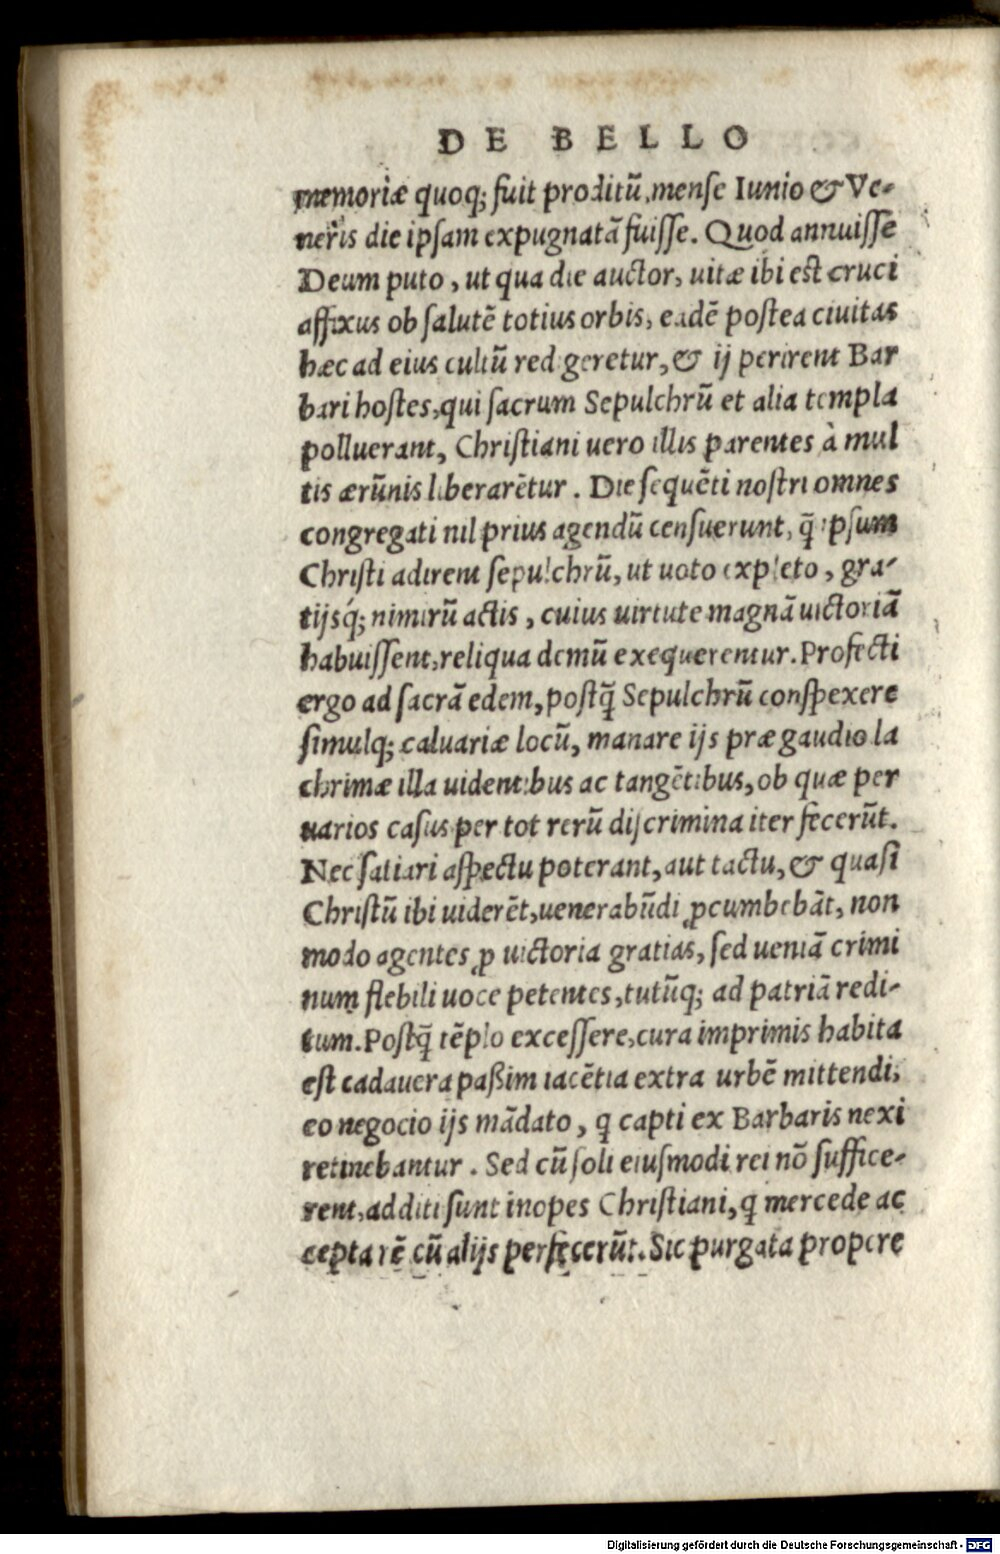 DE BELLO
memoriæ quoq; fuit proditū, mense Iunio & Ve-
neris die ipsam expugnatā fuisse. Quod annuisse
Deum puto, ut qua die auctor, uitæ ibi est cruci
affixus ob salutē totius orbis, eadē postea ciuitas
hæc ad eius cultū redigeretur, & ij perirent Bar
bari hostes, qui sacrum Sepulchrū et alia templa
polluerant, Christiani uero illis parentes à mul
tis ærūnis liberarētur. Die sequēti nostri omnes
congregati nil prius agendū censuerunt, q̄ ipsum
Christi adirent sepulchrū, ut uoto expleto, gra-
tijsq́; nimirū actis, cuius uirtute magnā uictoriā
habuissent, reliqua demū exequerentur. Profecti
ergo ad sacrā edem, postq̄ Sepulchrū conspexere
simulq; caluariæ locū, manare ijs præ gaudio la
chrimæ illa uidentibus ac tangētibus, ob quæ per
uarios casus per tot rerū discrimina iter fecerūt.
Nec satiari aspectu poterant, aut tactu, & quasi
Christū ibi uiderēt, uenerabūdi ꝓcumbebāt, non
modo agentes ꝓ uictoria gratias, sed ueniā crimi
num flebili uoce petentes, tutūq; ad patriā redi-
tum. Postq̄ tēplo excessere, cura imprimis habita
est cadauera paßim iacētia extra urbē mittendi,
eo negocio ijs mādato, q capti ex Barbaris nexi
retinebantur. Sed cū soli eiusmodi rei nō suffice-
rent, additi sunt inopes Christiani, q mercede ac
cepta rē cū alijs perfecerūt. Sic purgata propere
Digitalisierung gefördert durch die Deutsche Forschungsgemeinschaft - DFG